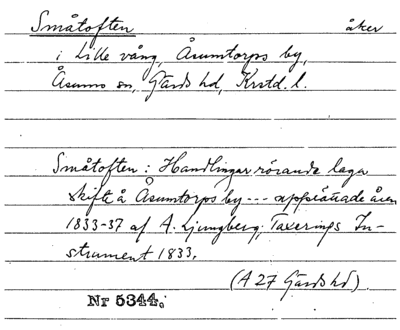 Småtoften åker
i Lille vång, Åsumtorps by,
Åsums sn, Gärds hd, Krstd. l.
Småtoften: Handlingar rörande laga
skifte å Åsumtorps by --- upprättade åren
1833-37 af A. Ljungberg; Taxerings In-
strument 1833.
(A 27 Gärds hd).
Nr 5344.